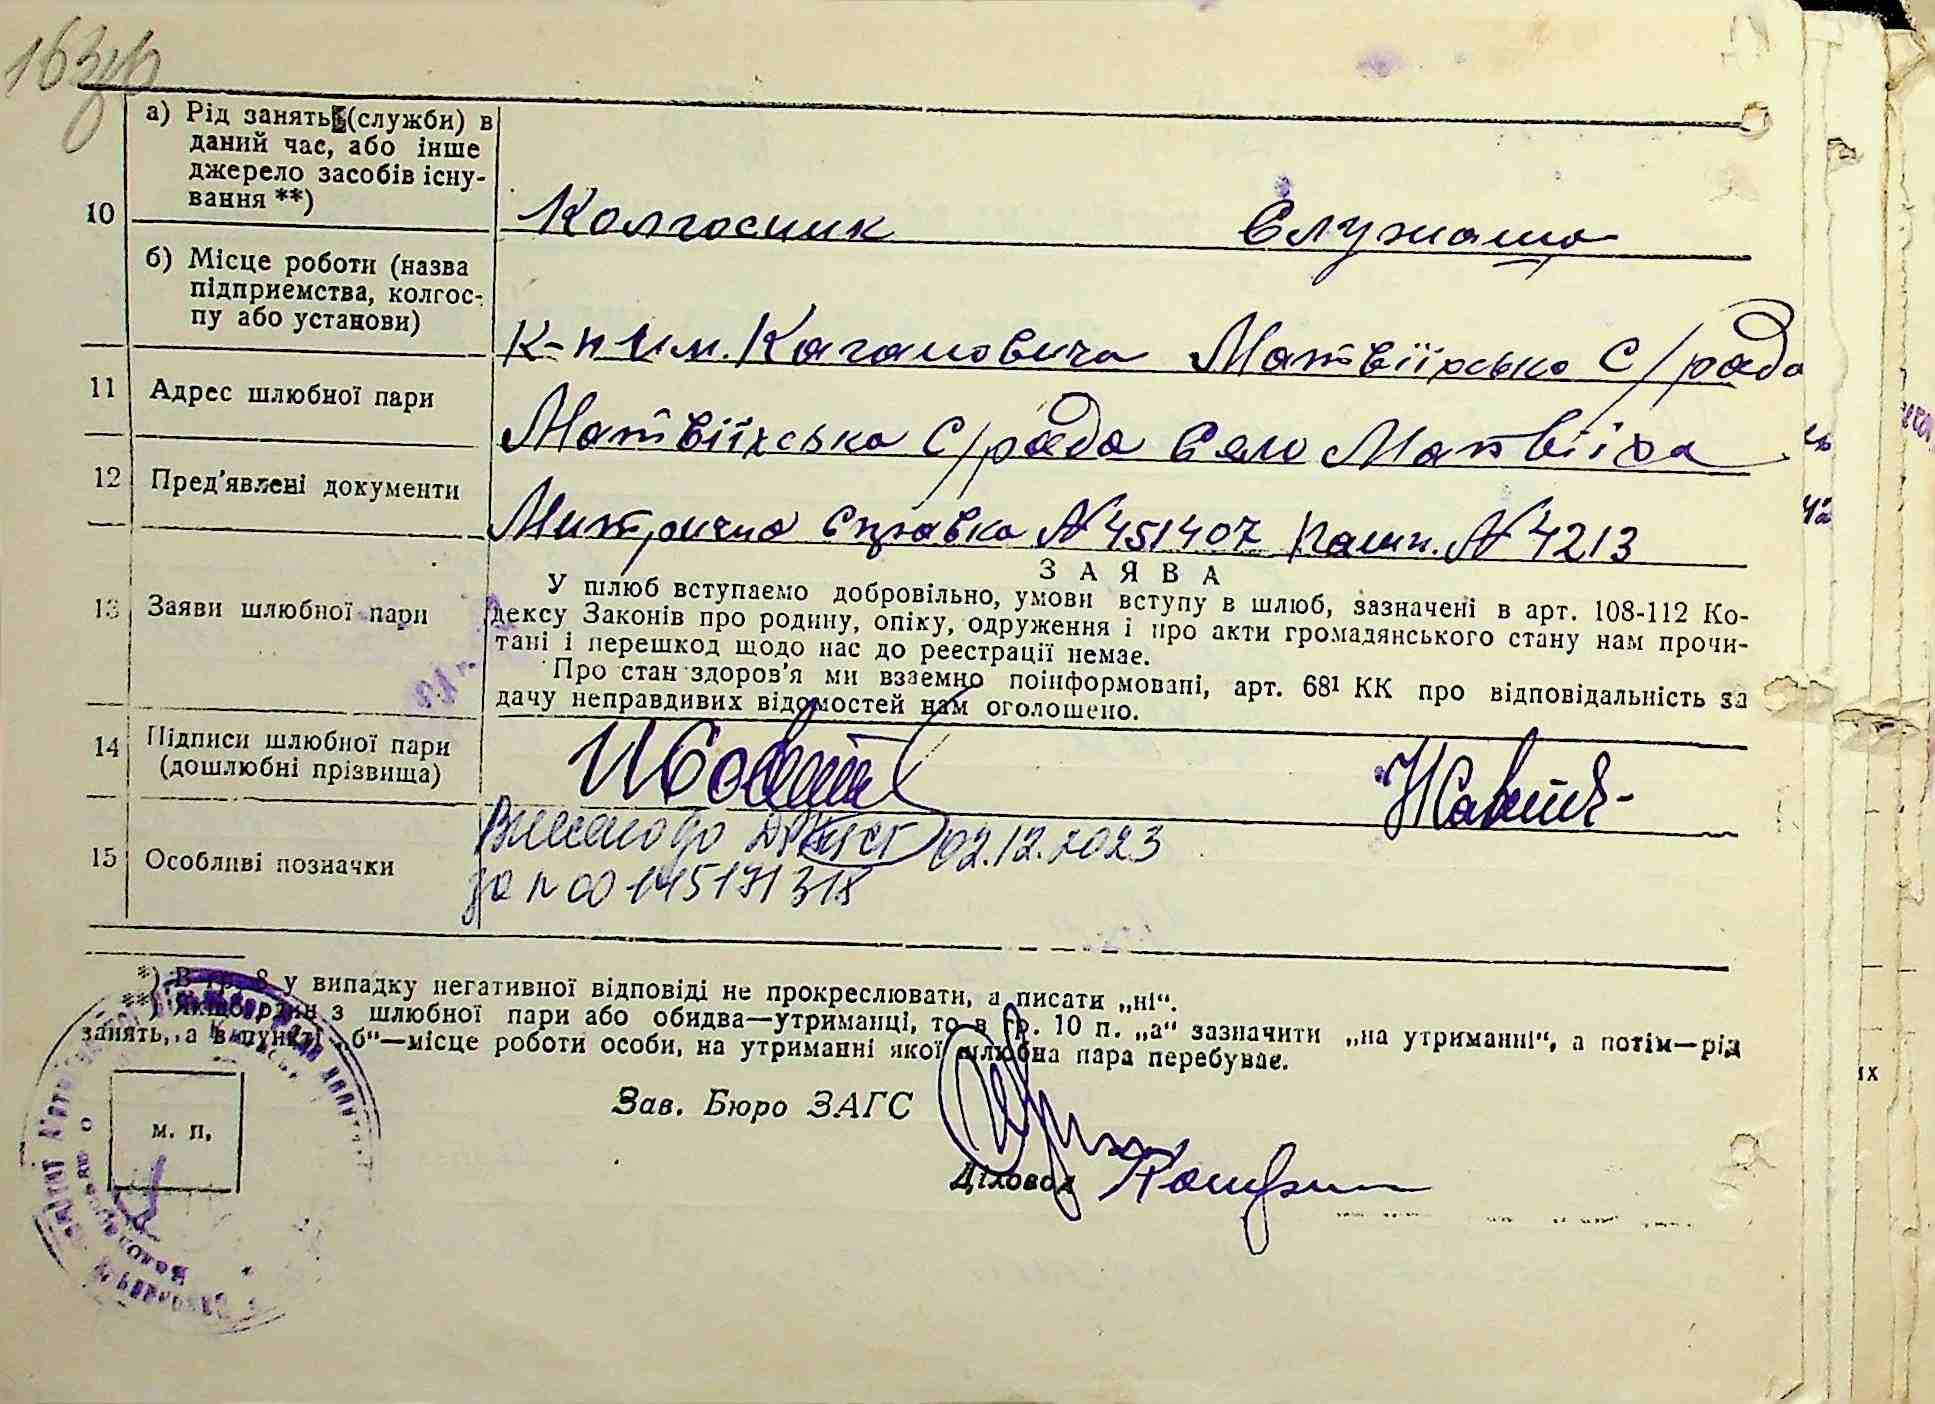 163
а) Рід занять (служби) в
даний час, або інше
джерело засобів існу-
вання **)
10
Колгосник Служаща
б) Місце роботи (назва
підприємства, колгос-
пу або установи)
К-п им. Кагановича Матвіїхська С/рада
11 Адрес шлюбної пари
Матвіїхська С/рада Село Матвіїха
12 Пред'явлені документи
Митрична Справка № 451407 № 4213
ЗАЯВА
13 Заяви шлюбної пари
У шлюб вступаємо добровільно, умови вступу в шлюб, зазначені в арт. 108-112 Ко-
дексу Законів про родину, опіку, одруження і про акти громадянського стану нам прочи-
тані і перешкод щодо нас до реєстрації немає.
Про стан здоров'я ми взаємно поінформовані, арт. 68¹ КК про відповідальність за
дачу неправдивих відомостей нам оголошено.
14 Підписи шлюбної пари
(дошлюбні прізвища)
15 Особливі позначки
02.12.2023
за № 00145171318
*) В гр. 8 у випадку негативної відповіді не прокреслювати, а писати „ні“.
**) Якщо один з шлюбної пари або обидва—утриманці, то в гр. 10 п. „а“ зазначити „на утриманні“, а потім—рід
занять, а в пункті „б“—місце роботи особи, на утриманні якої шлюбна пара перебуває.
Зав. Бюро ЗАГС
м. п.
Діловод